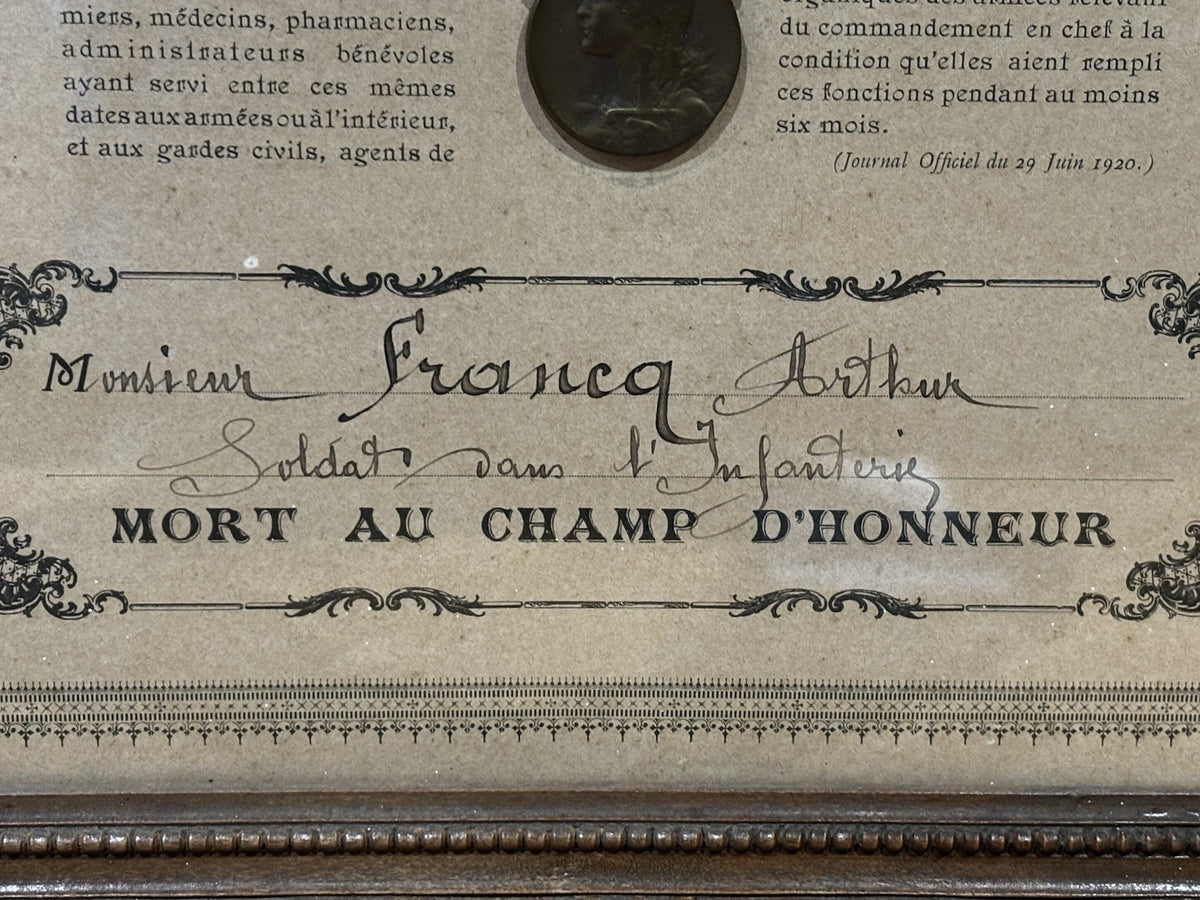 miers, médecins, pharmaciens,
administrateurs bénévoles
ayant servi entre ces mêmes
dates aux armées ou à l'intérieur,
et aux gardes civils, agents de
organiques des armées relevant
du commandement en chef à la
condition qu'elles aient rempli
ces fonctions pendant au moins
six mois.
(Journal Officiel du 29 Juin 1920.)
Monsieur Francq Arthur
Soldat dans l'Infanterie
MORT AU CHAMP D'HONNEUR